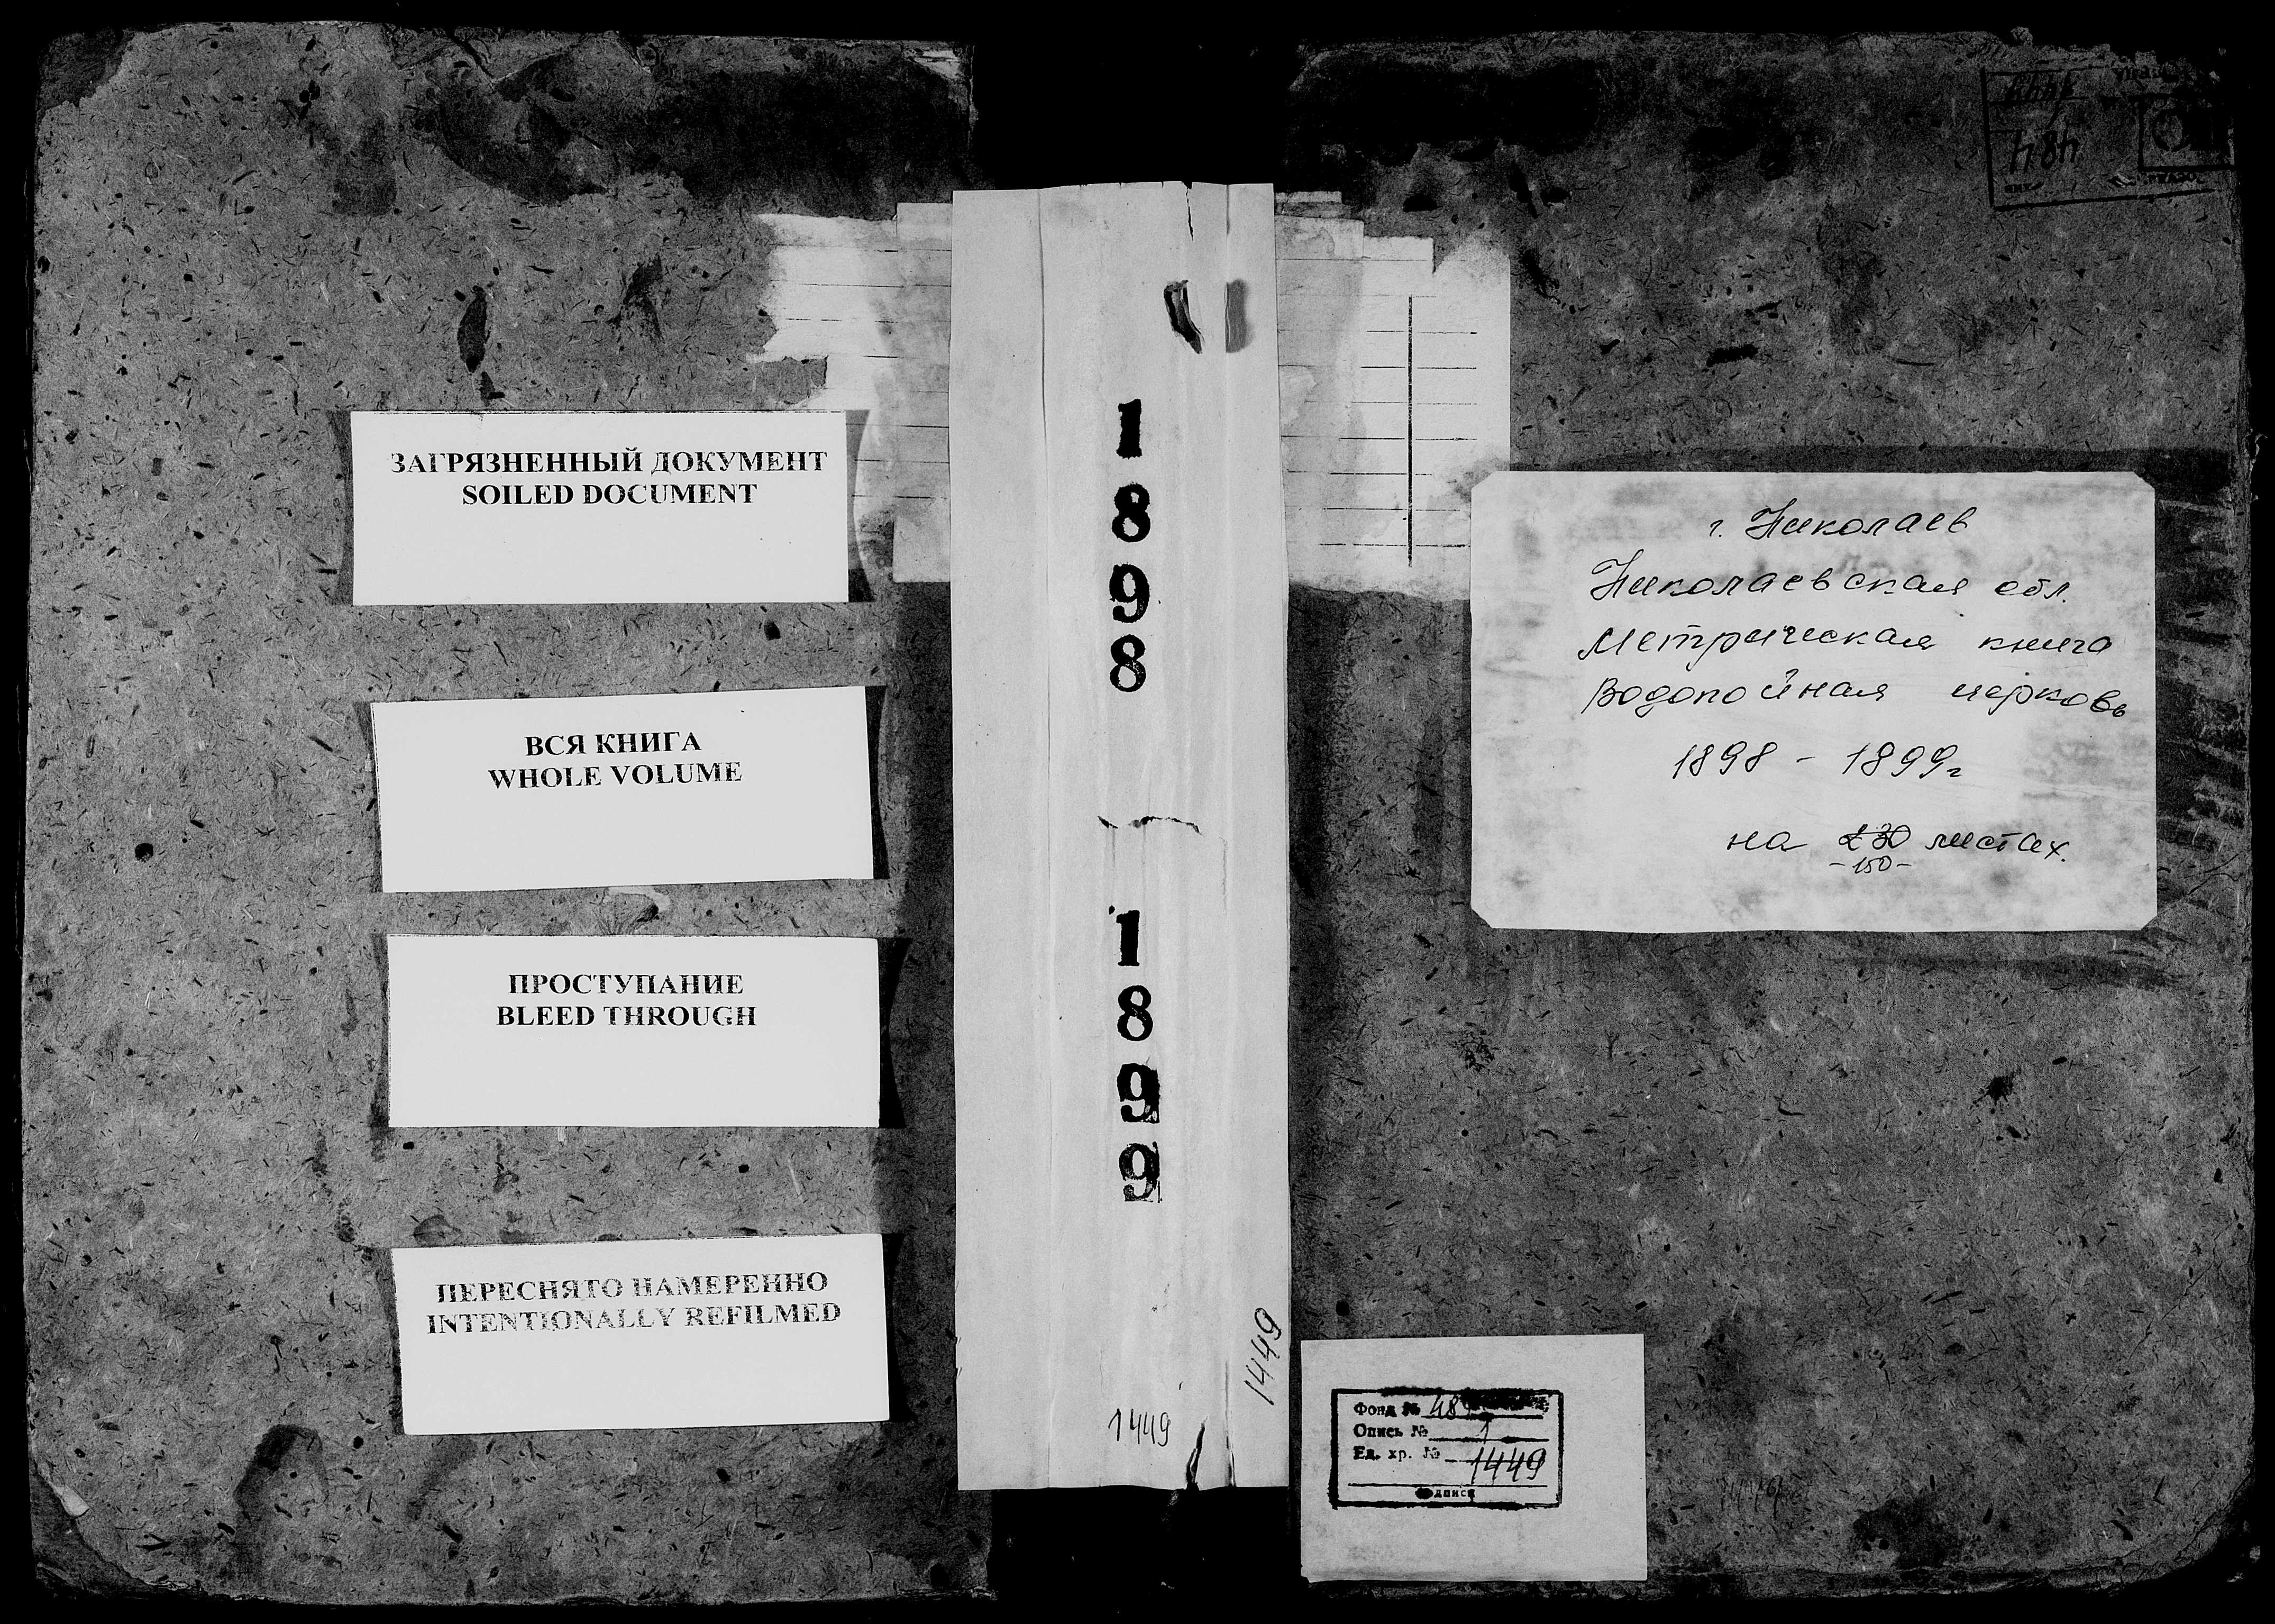 ЗАГРЯЗНЕННЫЙ ДОКУМЕНТ
SOILED DOCUMENT
ВСЯ КНИГА
WHOLE VOLUME
ПРОСТУПАНИЕ
BLEED THROUGH
ПЕРЕСНЯТО НАМЕРЕННО
INTENTIONALLY REFILMED
1898 - 1899
1449
1449
г. Николаев
Николаевская обл.
Метрическая книга
Водопойная церковь
1898 - 1899г
на 230 листах.
-150-
Фонд № 484
Опись № 1
Ед. хр. № 1449